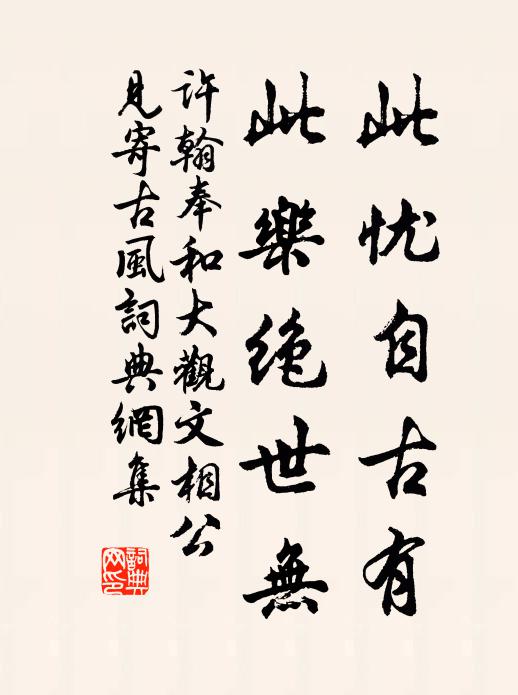 此忧自古有
此樂绝世無
許翰奉和大觀文相公
見寄古風詞典網集
詞典
网印